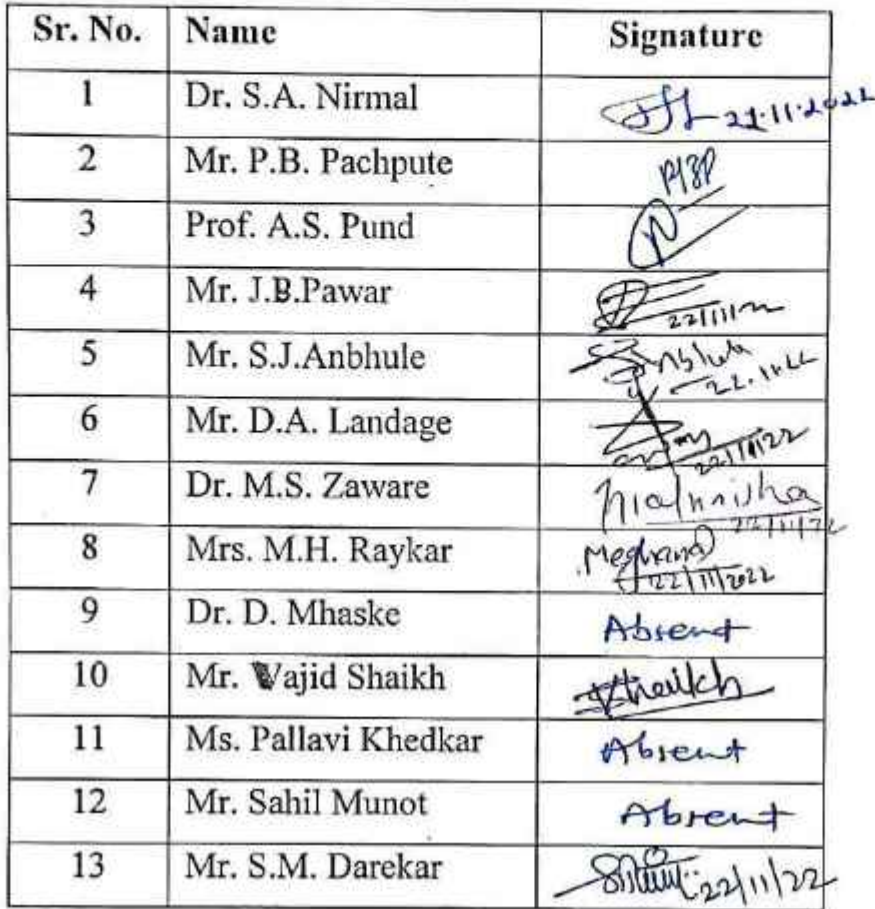 Sr. No. Name Signature
1 Dr. S.A. Nirmal 21.11.2022
2 Mr. P.B. Pachpute PBP
3 Prof. A.S. Pund
4 Mr. J.B.Pawar 22/11/22
5 Mr. S.J.Anbhule 22.11.22
6 Mr. D.A. Landage 22/11/22
7 Dr. M.S. Zaware 22/11/22
8 Mrs. M.H. Raykar 22/11/2022
9 Dr. D. Mhaske Absent
10 Mr. Wajid Shaikh Shaikh
11 Ms. Pallavi Khedkar Absent
12 Mr. Sahil Munot Absent
13 Mr. S.M. Darekar 22/11/22